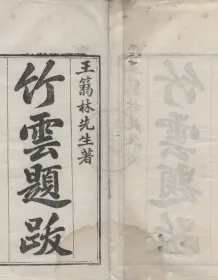 王篛林先生著
竹雲題跋